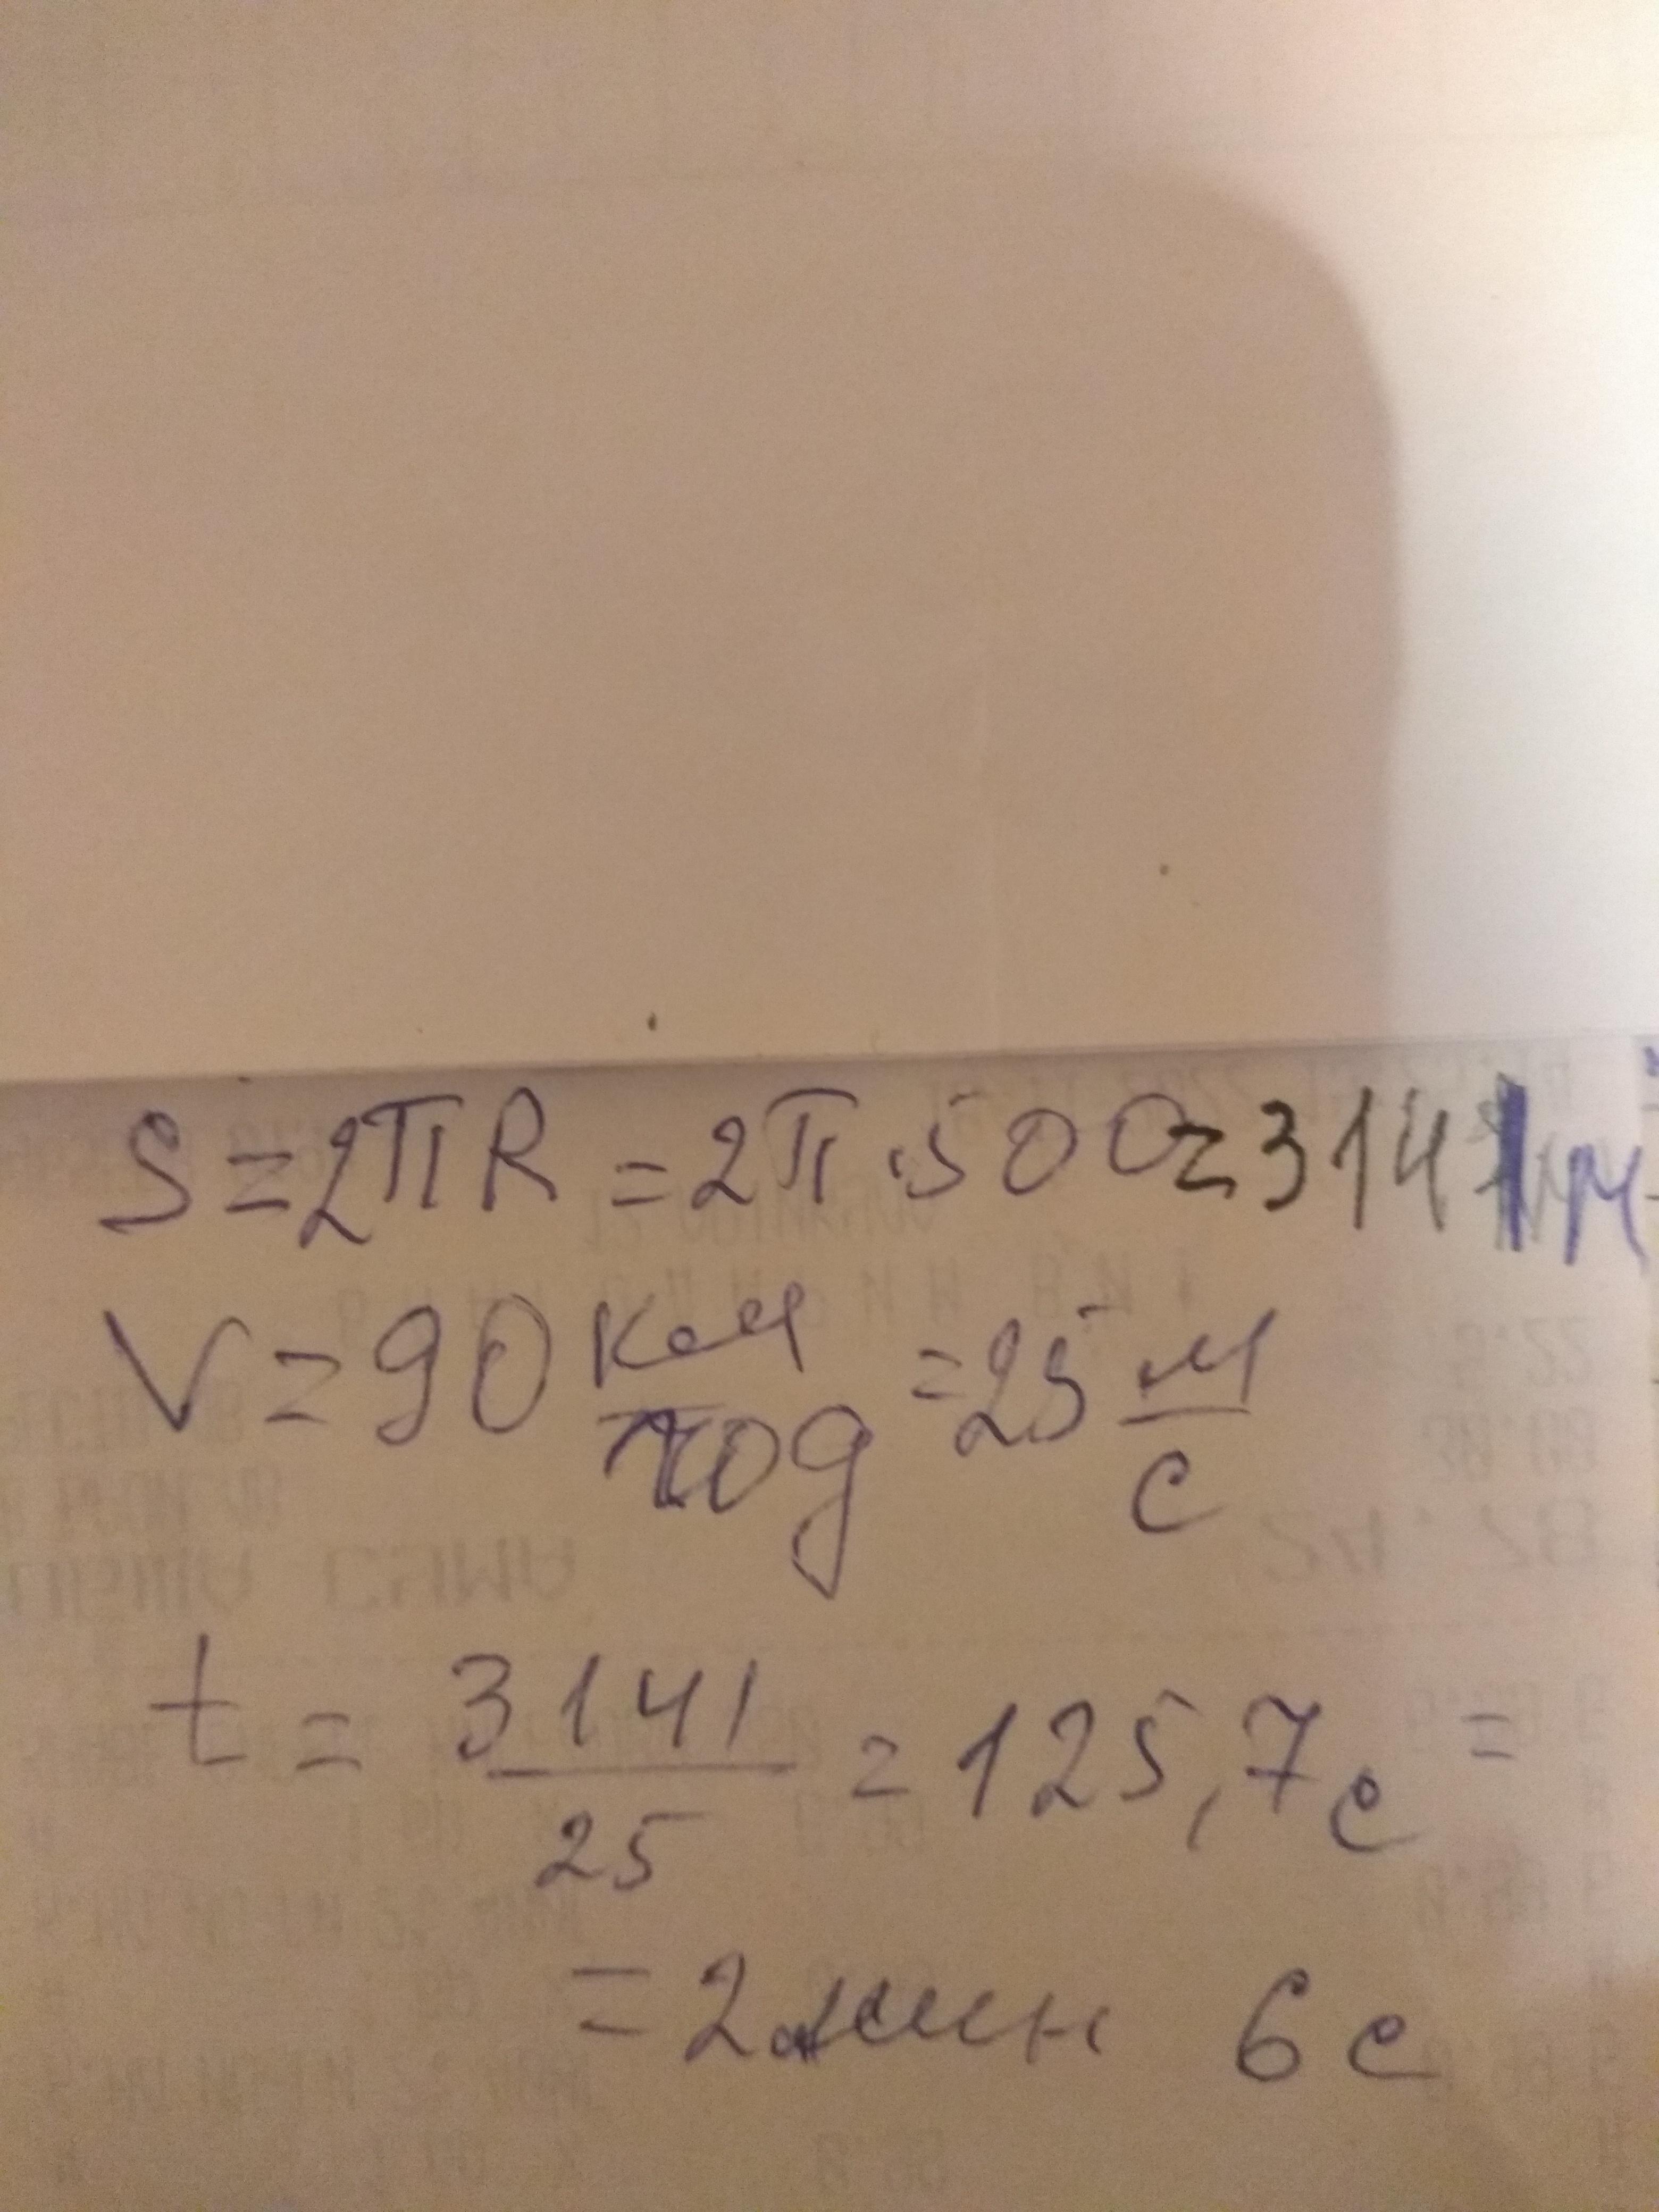 S=2πR=2π·500=3141м
V=90 км/год=25 м/с
t=3141/25=125,7с=
=2мин 6с